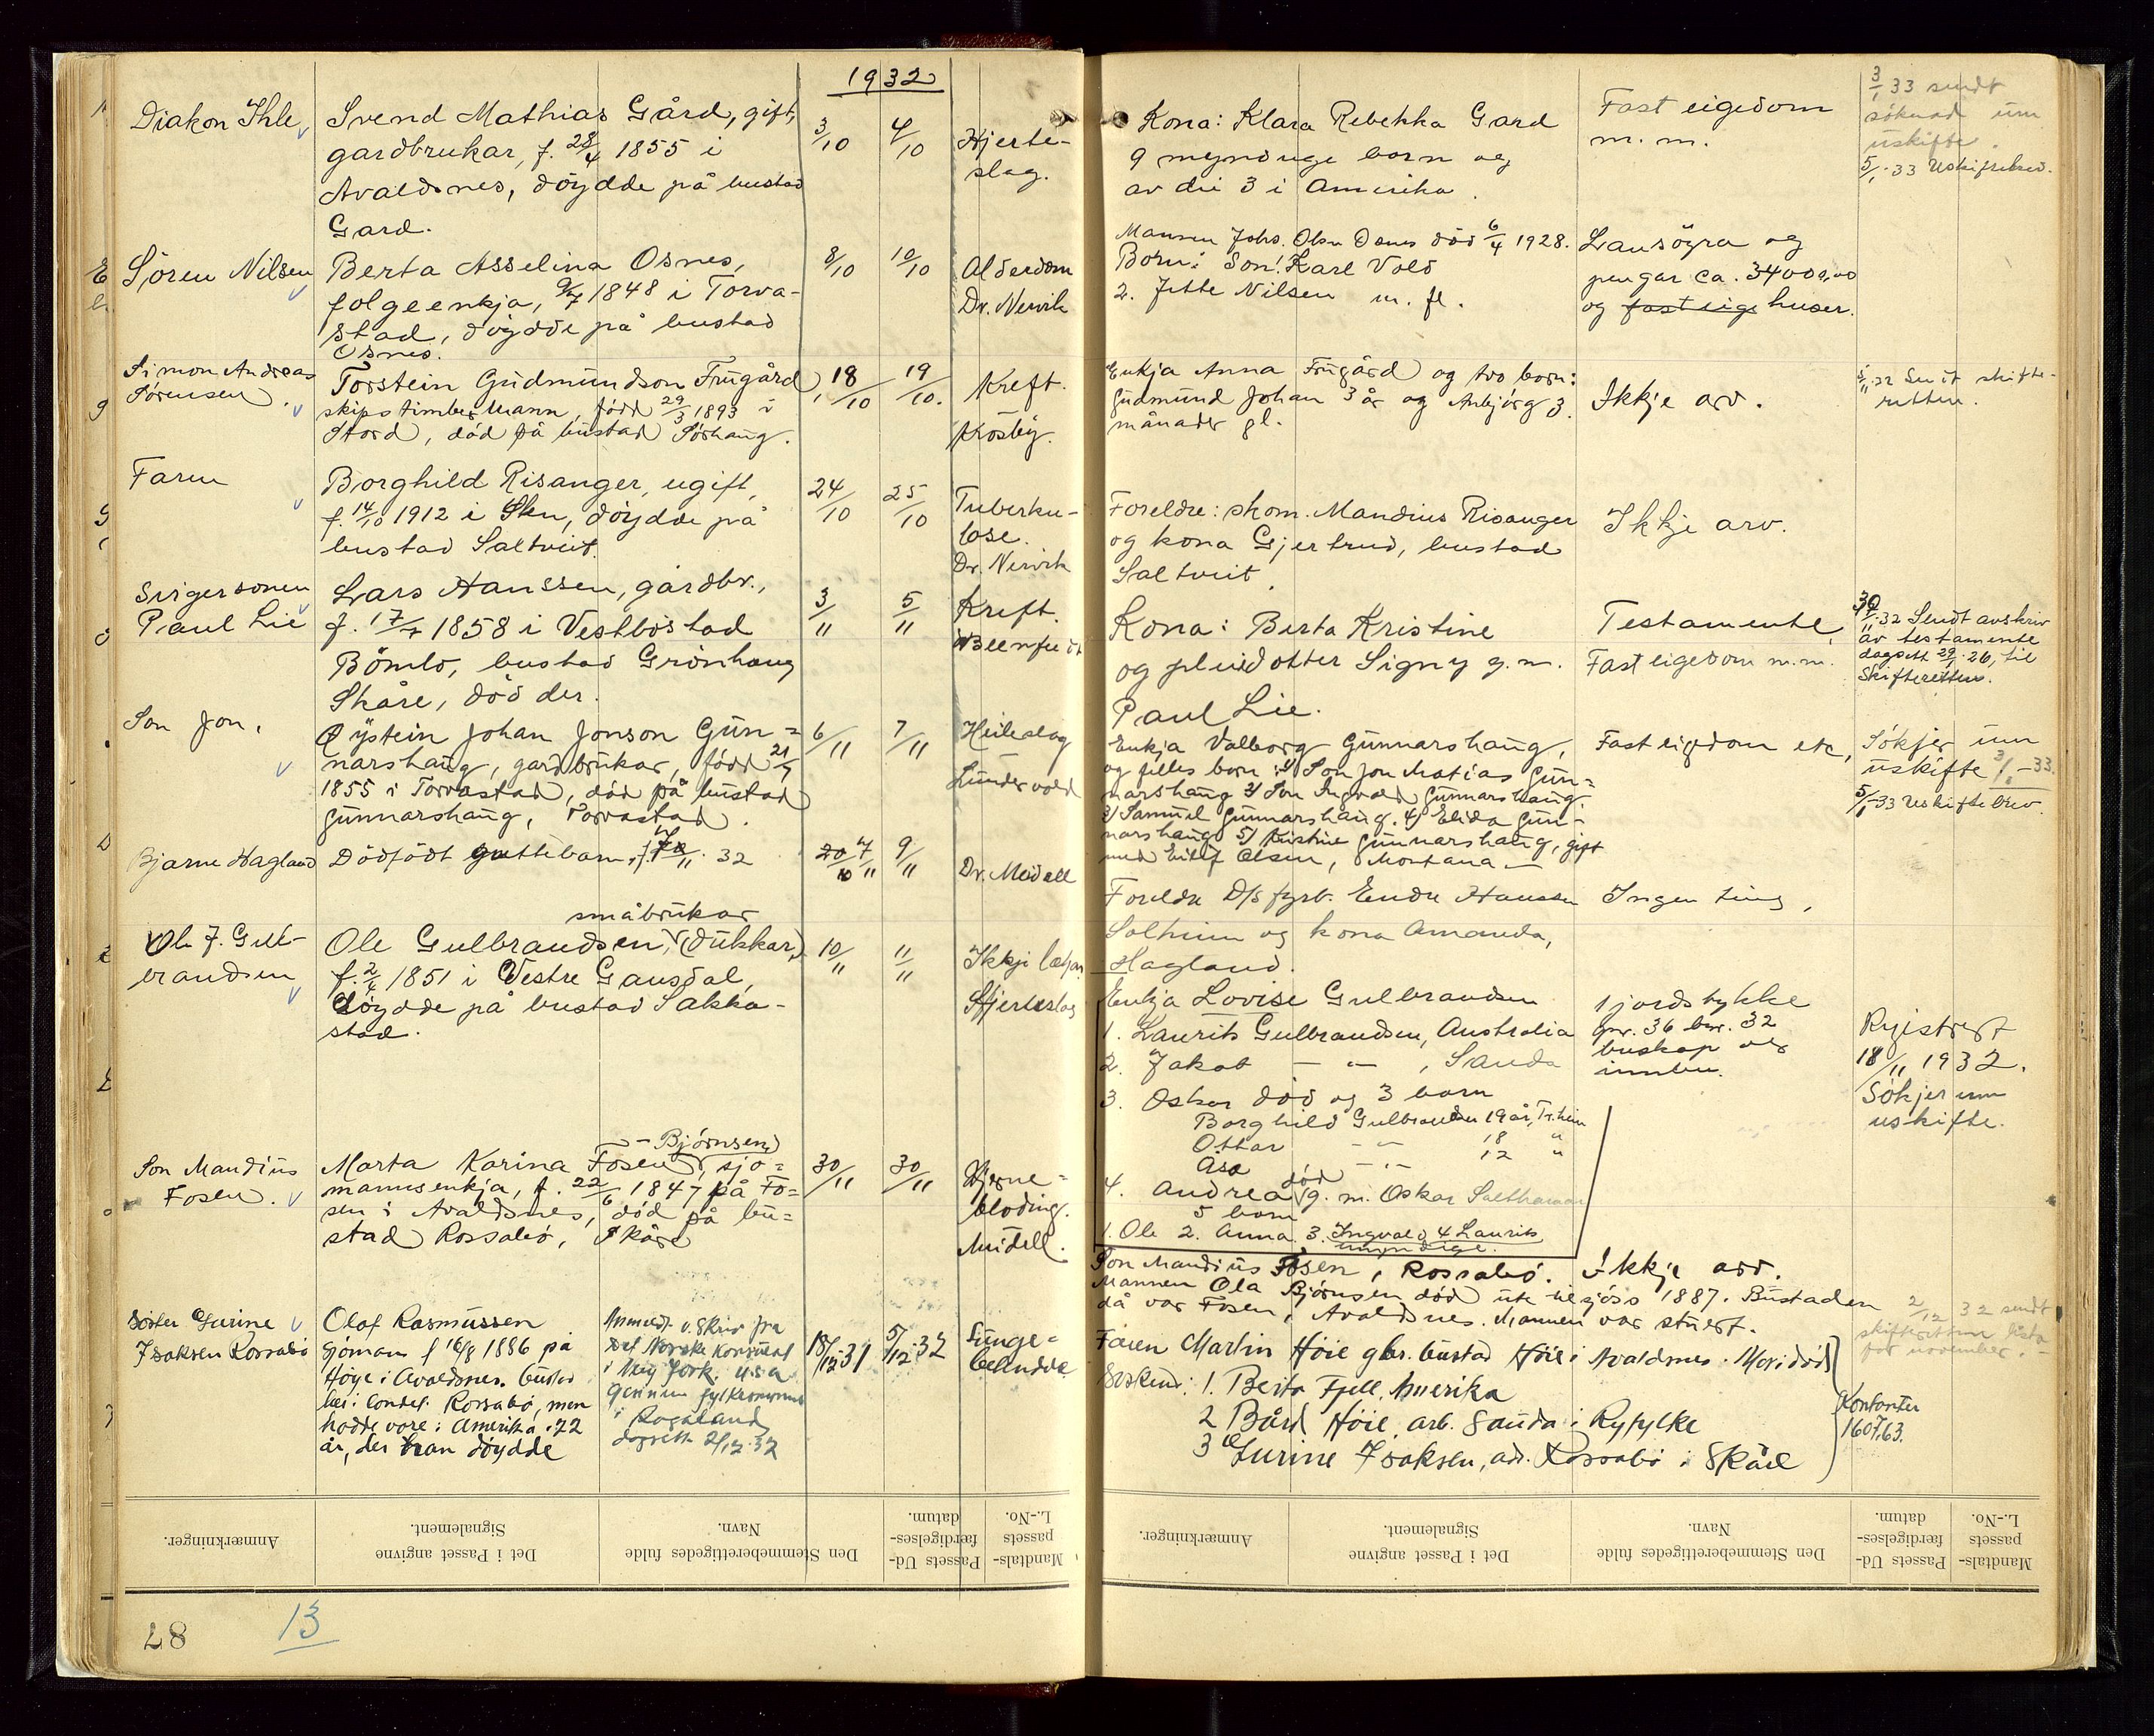 1932
Diakon Ihle
Svend Mathias Gård, gift,
gardbrukar, f. 28/4 1855 i
Avaldsnes, döydde på bustad
Gard.
3/10
4/10
Hjerte-
slag.
Kona: Klara Rebekka Gard
9 myndige born og
av dei 3 i Amerika.
Fast eigedom
m. m.
3/1 33 sendt
söknad um
uskifte.
5/1-33
Sören Nilsen
Berta Asselina Osnes,
folgeenkja, 1848 i Torva-
stad, döydde på bustad
Osnes.
8/10
10/10
Alderdom
Dr. Nervik
Mannen Johs. Olsn Osnes död 6/4 1928.
Born: Son: Karl Vold
2. Jette Nilsen m. fl.
Lausöyra og
pengar ca.
og fast eig. huser.
Simon Andreas
Sörensen.
Torstein Gudmundson Frugård,
skipstimbermann, född 29/3 1893 i
Stord, död på bustad Sörhaug.
18/10
19/10.
Kreft.
Krosby.
Enkja Anna Frugård og tvo born:
Gudmund Johan 3 år og Anbjörg 3
månader gl.
Ikkje arv.
32 Sendt skifte-
retten.
Faren
Borghild Risanger, ugift,
f. 14/10 1912 i Sken, döydde på
bustad Saltveit.
24/10
25/10
Tuberku-
lose.
Dr. Nervik
Foreldre: skom. Mandius Risanger
og kona Gjertrud, bustad
Saltveit.
Ikkje arv.
Svigersonen
Paul Lie
Lars Hanssen, gårdbr.,
f. 17/7 1858 i Vestböstad
Bömlo, bustad Grönhaug
Skåre, död der.
3/11
5/11
Kreft.
Kona: Berta Kristine
og pleiedotter Signy g. m.
Paul Lie.
Testamente,
Fast eigedom m.m.
30/11 32 Sendt avskriv
av testamente
dagsett 29/1 26, til
Skifteretten.
Son Jon.
Öystein Johan Jonson Gun=
narshaug, gardbrukar, född 21/7
1855 i Torvastad, död på bustad
Gunnarshaug, Torvastad.
6/11
7/11
Heileslag
Lundervold
Enkja Valborg Gunnarshaug,
og felles born: 1/ Son Jon Matias Gun=
narshaug 2/ Son Ingvald Gunnarshaug.
3/ Samuel Gunnarshaug. 4/ Elida Gun-
narshaug 5/ Kristine Gunnarshaug, gift
med Eilif Olsen, Montana
Fast eigdom etc,
Sökjer um
uskifte 3/1-33.
5/1-33 Uskiftebrev
Bjarne Hagland
Dödfödt guttebarn, f. 32
20/10 7/11
9/11
Dr. Meidell
Foreldre D/s fyrb. Endre Hanssen
Solheim og kona Amanda,
Hagland.
Ingen ting,
Ole J. Gul-
brandsen
småbrukar
Ole Gulbrandsen, (dukkar,)
f. 2/4 1851 i Vestre Gausdal,
döydde på bustad Sakka-
stad.
10/11
11/11
Ikkje lækjar
Hjerteslag
Enkja Lovise Gulbrandsen
1. Laurits Gulbrandsen, Australia
2. Jakob — " — , Sauda
3. Oskar död og 3 born
Borghild Gulbrandsen 19 år, Tr.heim
Ottar — " — 18 "
Åse — " — 12 "
4. Andrea död g. m. Oskar
5 born
1. Ole 2. Anna 3. Ingvald 4 Laurits
umyndige.
1 jordstykke
gnr. 36 bnr. 32
buskap og
innbu.
Registrert
18/11 1932.
Sökjer um
uskifte.
Son Mandius
Fosen.
— Björnsen)
Marta Karina Fosen, sjö=
mannsenkja, f. 22/6 1847 på Fo=
sen i Avaldsnes, död på bu=
stad Rossabö, Skåre
30/11
30/11
Hjerne=
blöding.
Meidell.
Son Mandius Fosen, Rossabö.
Mannen Ola Björnsen död ute til sjöss 1887. Bustaden
då var Fosen, Avaldsnes. Mannen var stuert.
Ikkje arv.
2/12 32 sendt
skifteretten lista
for november.
Söster Gurine
Isaksen Rossabö
Olaf Rasmussen
sjömann f 16/8 1886 på
Höye i Avaldsnes. bustad
Rossabö, men
hadde vore i Amerika i 22
år, der han döydde
Anmeldt v. Skriv fra
Det Norske Konsulat
i New York. U.S.A
gjennem fylkesmannen
i Rogaland
dagsett 2/12 32
18/12-31
5/12-32
Lunge=
betendelse
Faren Martin Höie gbr. bustad Höie i Avaldsnes. Mor död
Sösken: 1. Berta Fjell, Amerika
2 Bård Höie, arb. Sauda i Ryfylke
3 Gurine Isaksen, adr. Rossabö i Skåre
Kontanter
1607,63.
Anmærkninger.
Det i Passet angivne
Signalement.
Den Stemmeberettigedes fulde
Navn.
Passets Ud-
færdigelses-
datum.
Mandtals-
passets
L.-No.
Anmærkninger.
Det i Passet angivne
Signalement.
Den Stemmeberettigedes fulde
Navn.
Passets Ud-
færdigelses-
datum.
Mandtals-
passets
L.-No.
28
13